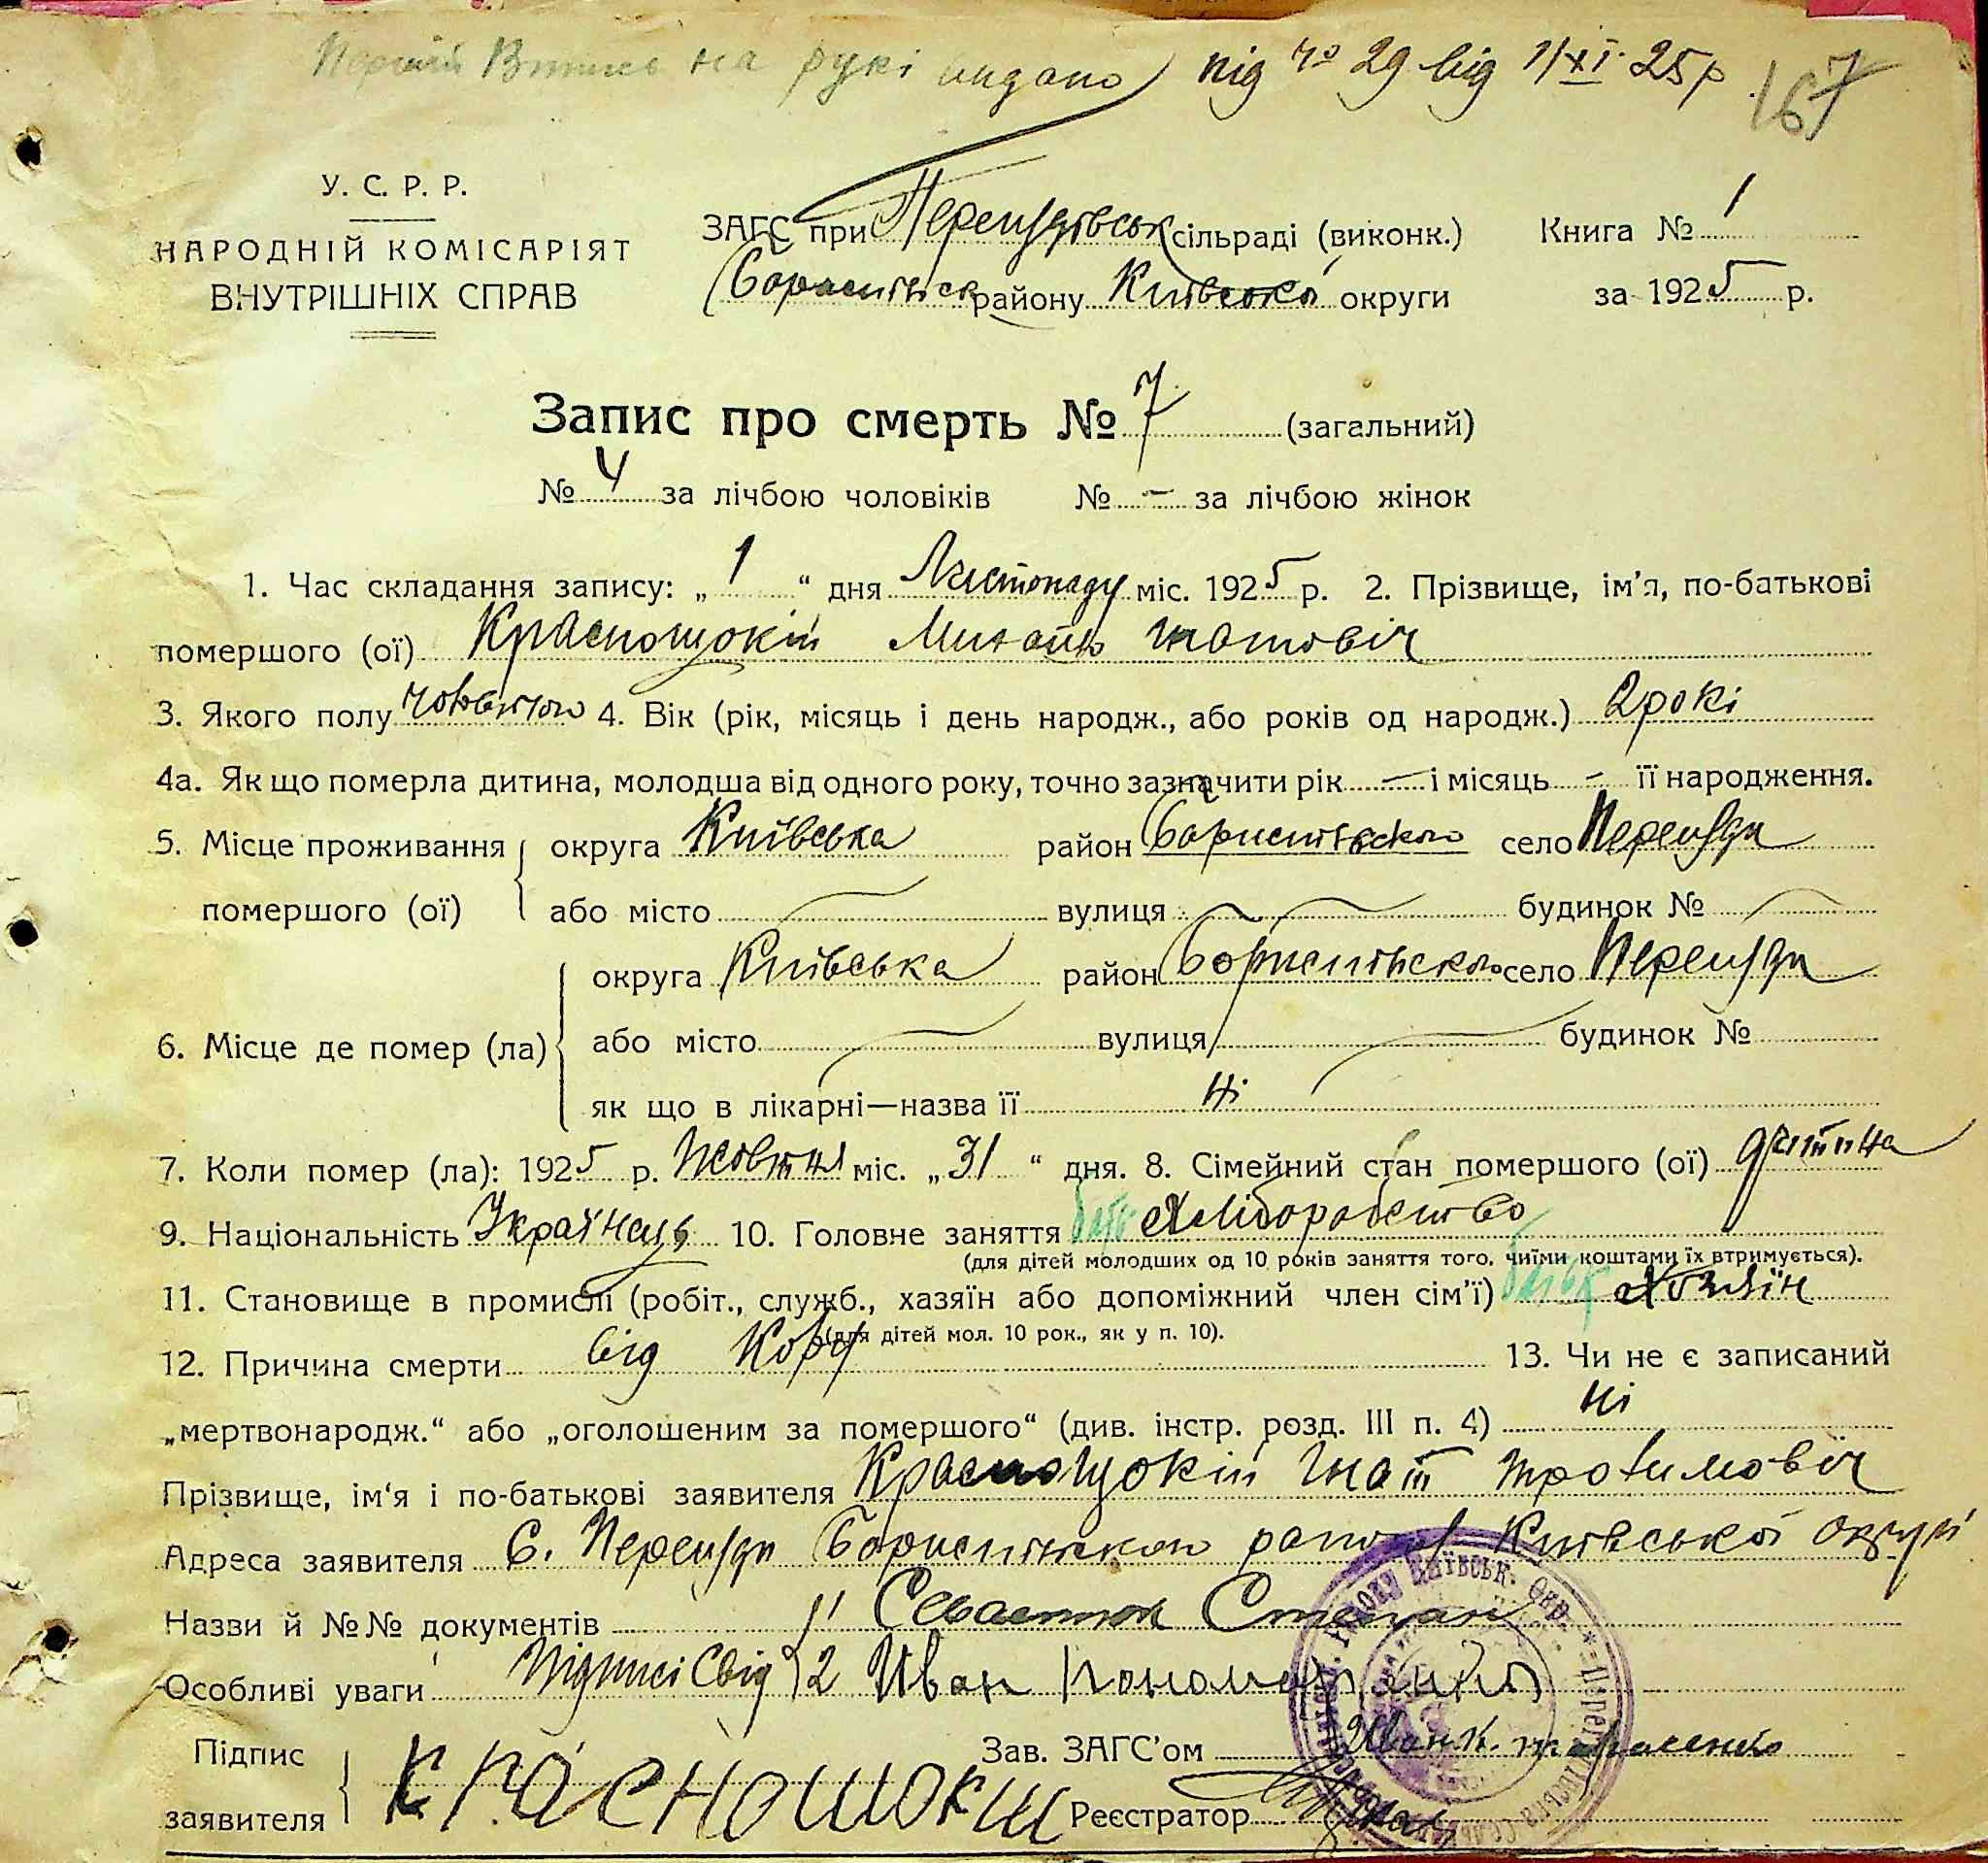 Перший Витис на рукі видано під № 29 від 1/XI 25 р.
167
У. С. Р. Р.
НАРОДНІЙ КОМІСАРІЯТ
ВНУТРІШНІХ СПРАВ
ЗАГС при сільраді (виконк.)
району Київської округи
Книга № 1
за 1925 р.
Запис про смерть № 7 (загальний)
№ 4 за лічбою чоловіків № - за лічбою жінок
1. Час складання запису: „ 1 “ дня Листопаду міс. 1925 р. 2. Прізвище, ім'я, по-батькові
помершого (ої) Краснощокій Михайло Гнатовіч
3. Якого полу 4. Вік (рік, місяць і день народж., або років од народж.) 2 рокі
4а. Як що померла дитина, молодша від одного року, точно зазначити рік — і місяць - її народження.
5. Місце проживання округа Київська район Бориспільского село Перегуди
помершого (ої) або місто вулиця будинок №
округа Київська район Бориспільского село Перегуди
6. Місце де помер (ла) або місто вулиця будинок №
як що в лікарні—назва її Ні
7. Коли помер (ла): 1925 р. Жовтня міс. „31“ дня. 8. Сімейний стан помершого (ої) дитина
9. Національність Українець 10. Головне заняття батьк Хліборобство
(для дітей молодших од 10 років заняття того, чиїми коштами їх втримується).
11. Становище в промислі (робіт., служб., хазяїн або допоміжний член сім'ї) батьк Хозяїн
(для дітей мол. 10 рок., як у п. 10).
12. Причина смерти від Кору 13. Чи не є записаний
„мертвонародж.“ або „оголошеним за помершого“ (див. інстр. розд. III п. 4) Ні
Прізвище, ім'я і по-батькові заявителя Краснощокій Гнат Трохимовіч
Адреса заявителя С. Перегуди Бориспільского району Київської округи
Назви й №№ документів 1 Севастюк Степан
Особливі уваги Підписі Свід 2 Иван Пономаренко
Підпис Зав. ЗАГС'ом Иван К. Тарасенко
заявителя КРАСНОШОКИЙ Реєстратор